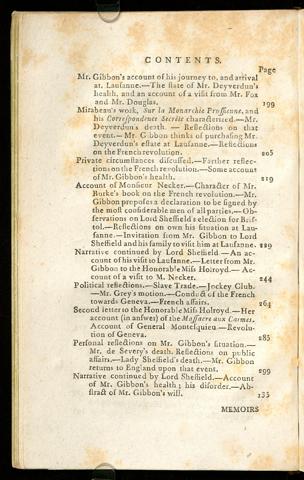 CONTENTS.
Page
Mr. Gibbon's account of his journey to, and arrival
at Lausanne.—The state of Mr. Deyverdun's
health, and an account of a visit from Mr. Fox
and Mr. Douglas. 199
Mirabeau's work, Sur la Monarchie Prussienne, and
his Correspondence Secrète characterised.—Mr.
Deyverdun's death. — Reflections on that
event.—Mr. Gibbon thinks of purchasing Mr.
Deyverdun's estate at Lausanne.—Reflections
on the French revolution. 205
Private circumstances discussed.—Farther reflec-
tions on the French revolution.—Some account
of Mr. Gibbon's health. 219
Account of Monsieur Necker.—Character of Mr.
Burke's book on the French revolution.—Mr.
Gibbon proposes a declaration to be signed by
the most considerable men of all parties.—Ob-
servations on Lord Sheffield's election for Bris-
tol.—Reflections on his own situation at Lau-
sanne.—Invitation from Mr. Gibbon to Lord
Sheffield and his family to visit him at Lausanne. 229
Narrative continued by Lord Sheffield.—An ac-
count of his visit to Lausanne.—Letter from Mr.
Gibbon to the Honorable Miss Holroyd.—Ac-
count of a visit to M. Necker. 244
Political reflections.—Slave Trade.—Jockey Club.
—Mr. Grey's motion.—Conduct of the French
towards Geneva.—French affairs. 263
Second letter to the Honorable Miss Holroyd.—Her
account (in answer) of the Massacre aux Carmes.
Account of General Montesquieu.—Revolu-
tion of Geneva. 285
Personal reflections on Mr. Gibbon's situation.—
Mr. de Severy's death. Reflections on public
affairs.—Lady Sheffield's death.—Mr. Gibbon
returns to England upon that event. 299
Narrative continued by Lord Sheffield.—Account
of Mr. Gibbon's health; his disorder.—Ab-
stract of Mr. Gibbon's will. 135
MEMOIRS